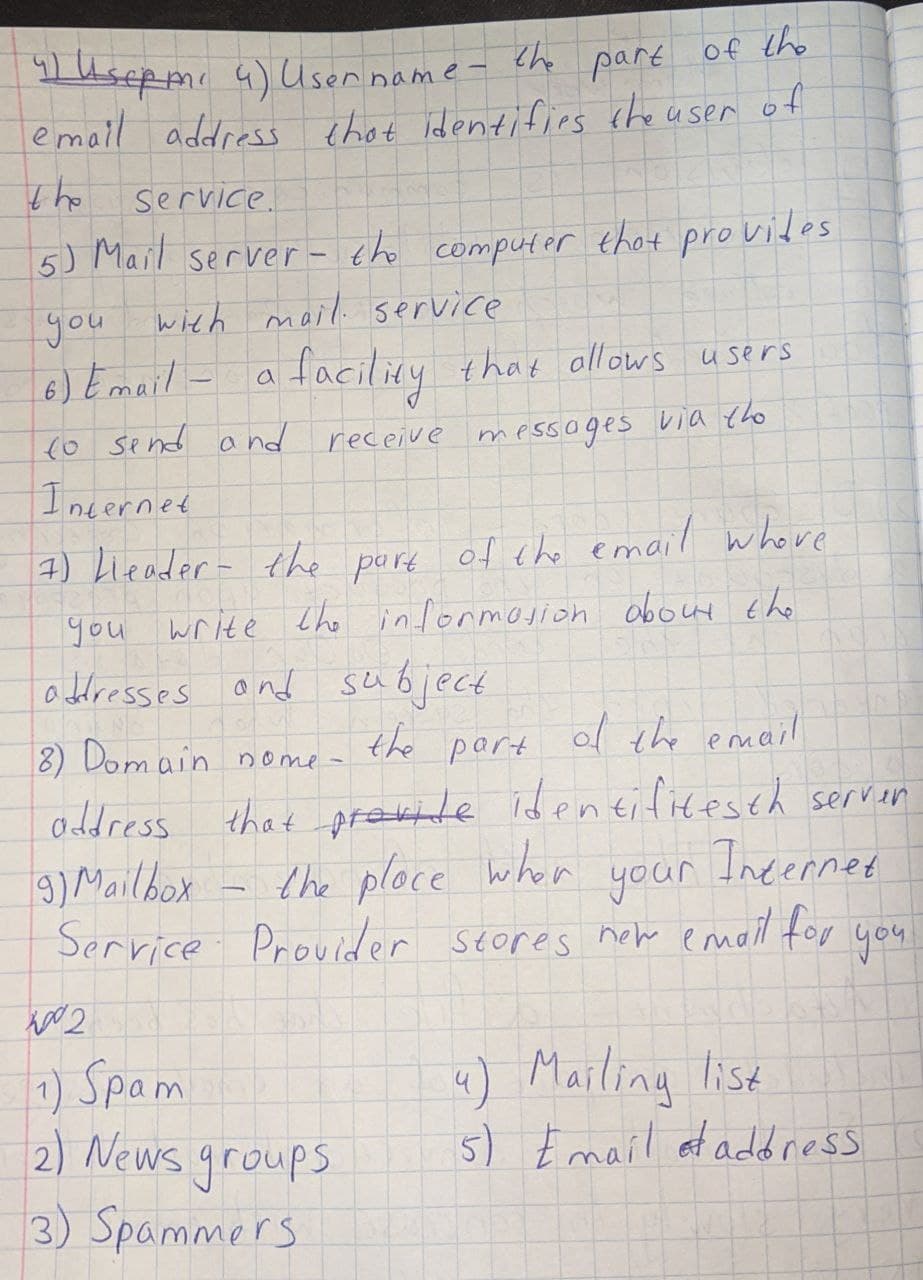 4) Username – the part of the
email address that identifies the user of
the service.
5) Mail server – the computer that provides
you with mail service
6) Email – a facility that allows users
to send and receive messages via the
Internet
7) Header – the part of the email where
you write the information about the
addresses and subject
8) Domain name – the part of the email
address that provide identifitesth server
9) Mailbox – the place wher your Internet
Service Provider stores new email for you
№2
1) Spam 4) Mailing list
2) News groups 5) Email address
3) Spammers